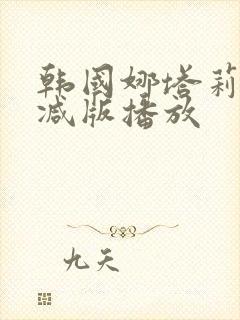 韩国娜塔莉
减版播放
九天